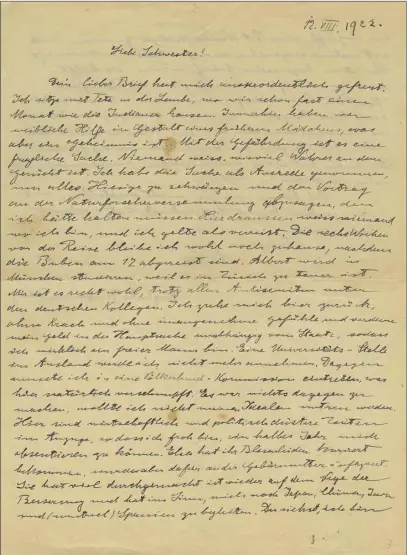 12. VIII. 1922.
Liebe Schwester!
Dein lieber Brief hat mich ausserordentlich gefreut.
Ich sitze mit Tete in der Laube, wo wir schon fast einen
Monat wie die Indianer hausen. Inzwischen haben wir
weibliche Hilfe in Gestalt eines früheren Mädchens, was
aber ein Geheimnis ist. Mit der Gefährdung ist es eine
fragliche Sache. Niemand weiss, wieviel Wahres an dem
Gerücht ist. Ich habe die Sache als Ausrede genommen,
um alles Hiesige zu schwänzen und den Vortrag
an der Naturforscherversammlung abzusagen, den
ich hätte halten müssen. Hier draussen weiss niemand
wo ich bin, und ich gelte als verreist. Die sechs Wochen
vor der Reise bleibe ich wohl noch zuhause, nachdem
die Buben am 17 abgereist sind. Albert wird in
München studieren, weil es in Zürich zu teuer ist.
Mir ist es recht wohl, trotz aller Antisemiten unter
den deutschen Kollegen. Ich ziehe mich hier zurück,
ohne Krach und ohne unangenehme Gefühle und verdiene
mein Geld in der Hauptsache unabhängig vom Staate, sodass
ich wirklich ein freier Mann bin. Eine Universitäts-Stelle
im Ausland werde ich nicht mehr annehmen. Dagegen
musste ich in eine Völkerbund-Kommission eintreten, was
hier natürlich verschnupft. Es war nichts dagegen zu
machen, wollte ich nicht meinen Idealen untreu werden.
Hier sind wirtschaftlich und politisch düstere Zeiten
im Anzuge, sodass ich froh bin, ein halbes Jahr mich
absentieren zu können. Elsa hat ihr Blasenleiden
bekommen, wurde aber dafür an der Gebärmutter
Sie hat viel durchgemacht ist wieder auf dem Wege der
Besserung und hat im Sinne, mich nach Japan, China, Java
und (eventuel) Spanien zu begleiten. Du siehst, ich bin